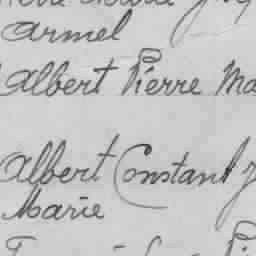 Armel
Albert Pierre Ma
Albert Constant J
Marie